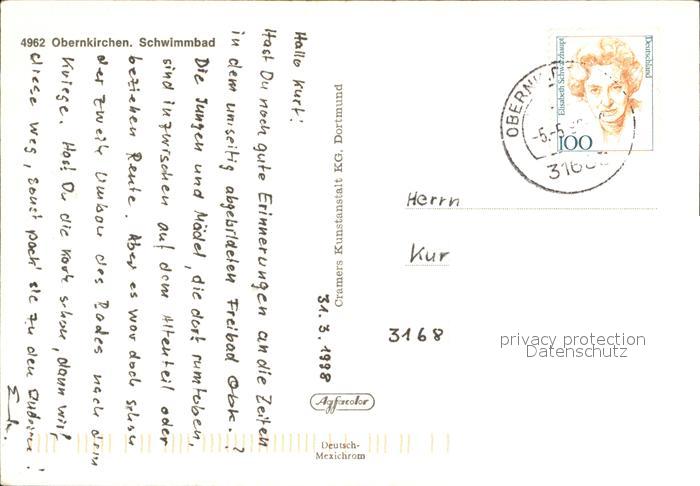 4962 Obernkirchen. Schwimmbad
Hallo Kurt!
Hast Du noch gute Erinnerungen an die Zeiten
in dem umseitig abgebildeten Freibad Obk.?
Die Jungen und Mädel, die dort rumtoben,
sind inzwischen auf dem Altenteil oder
beziehen Rente. Aber es war doch schon
der zweite Umbau des Bades nach dem
Kriege. Hast Du die Karte schon, dann wirf
diese weg, sonst pack sie zu den Anderen!
31.3.1998
Cramers Kunstanstalt KG. Dortmund
Agfacolor
Deutsch-
Mexichrom
Deutschland
Elisabeth Schwarzhaupt
100
OBERN
-5.-6.
3168
Herrn
Kur
3168
privacy protection
Datenschutz